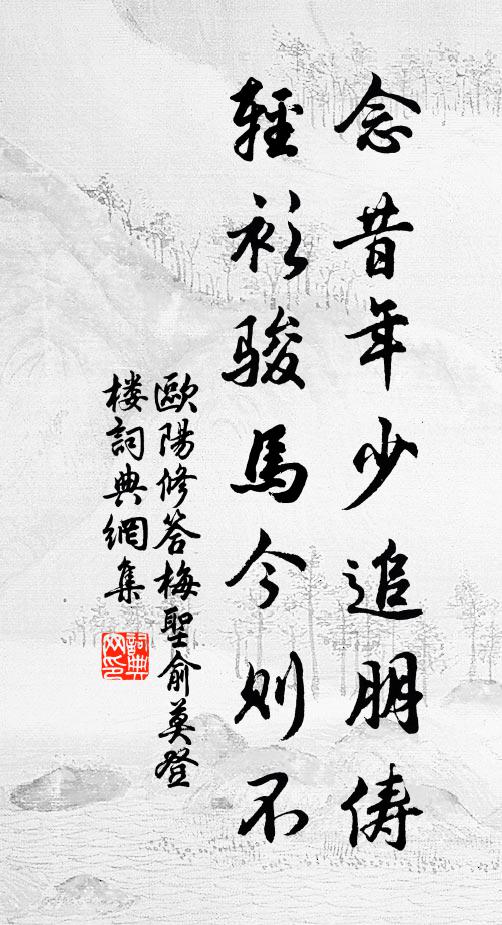 念昔年少追朋儔
輕衫駿馬今則不
歐陽修答梅聖俞莫登
楼詞典網集
詞典网印